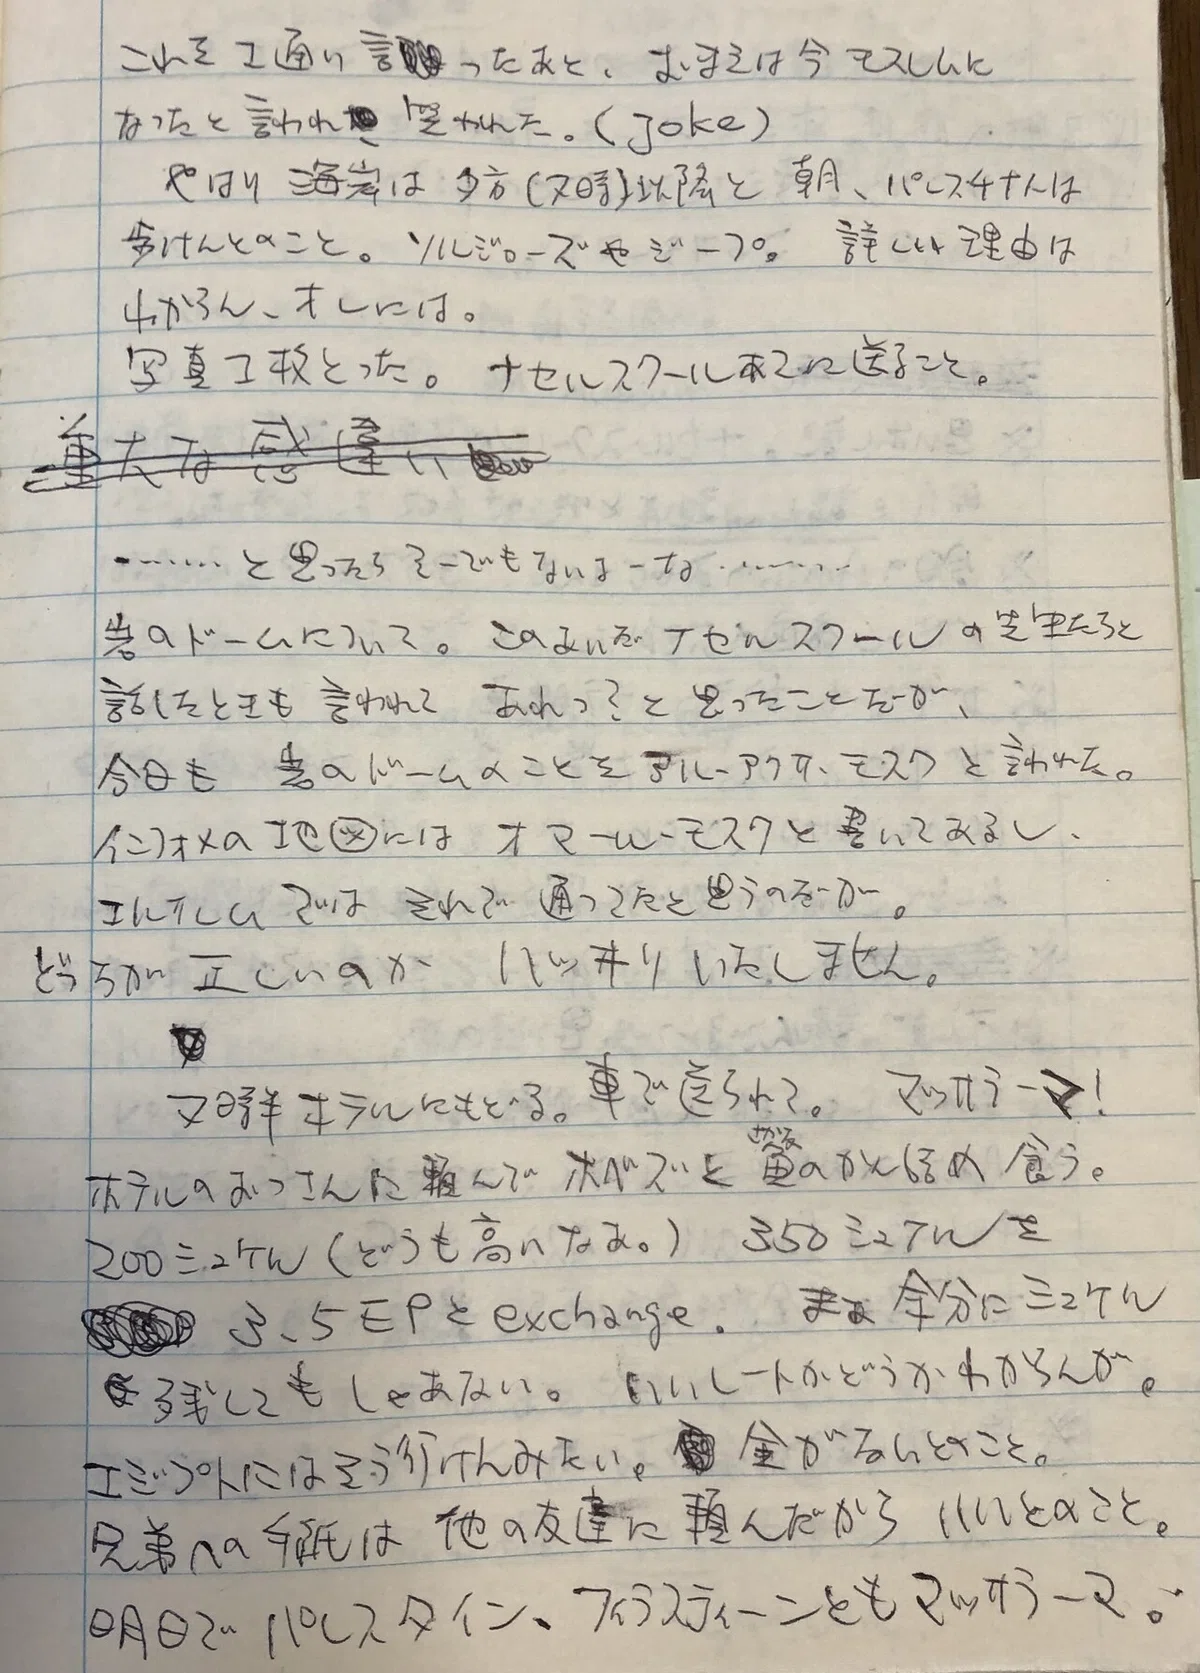 これを1通り言ったあと、おまえは今モスレムに
なったと言われ 笑かれた。(joke)
やはり 海岸は 夕方(7時)以降と 朝、パレスチナ人は
歩けんとのこと。ソルジャーズやジープ。 詳しい理由は
わからん、オレには。
写真1枚とった。 ナセルスクールあてに送ること。
重大な感違い
………と思ったらそーでもないよーな………
岩のドームについて。このあいだナセルスクールの先生たちと
話したときも 言われて あれっ?と思ったことだが、
今日も 岩のドームのことをアル-アクサ・モスクと言われた。
インフォメの地図には オマール・モスクと書いてあるし、
エルサレムでは それで通ってたと思うのだが。
どっちが正しいのか ハッキリいたしません。
7時半ホテルにもどる。車で送られて。 マッサラーマ!
ホテルのおっさんに頼んで ホベズと 魚(さかな)のかんづめ 食う。
200ミュケル(どうも高いなあ。) 350ミュケルを
3.5EPとexchange. まあ 余分にミュケル
残しても しゃあない。 いいレートかどうかわからんが。
エジプトにはそう行けんみたい。 金がないとのこと。
兄弟への手紙は 他の友達に頼んだから いいとのこと。
明日で パレスタイン、フィラスティーンともマッサラーマ。